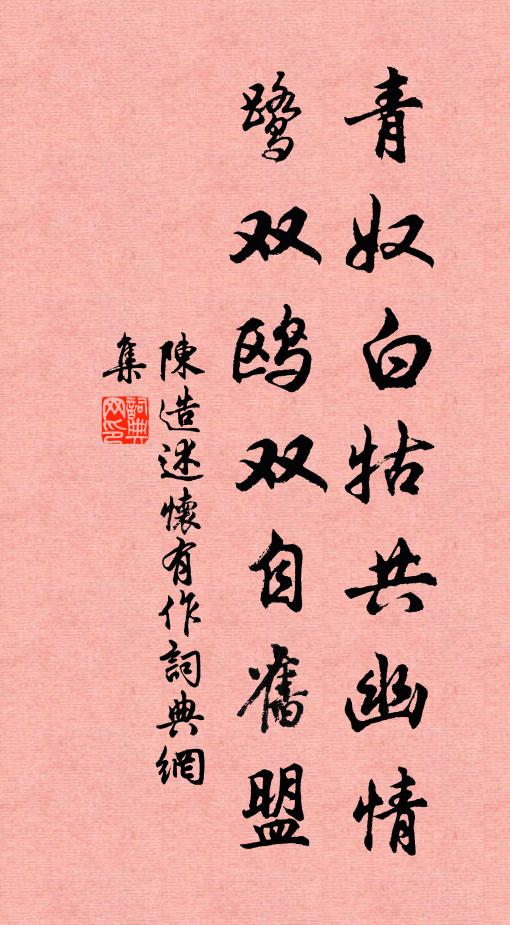 青奴白牯共幽情
鹭双鸥双自舊盟
陳造述懷有作詞典網
集
詞典
网印